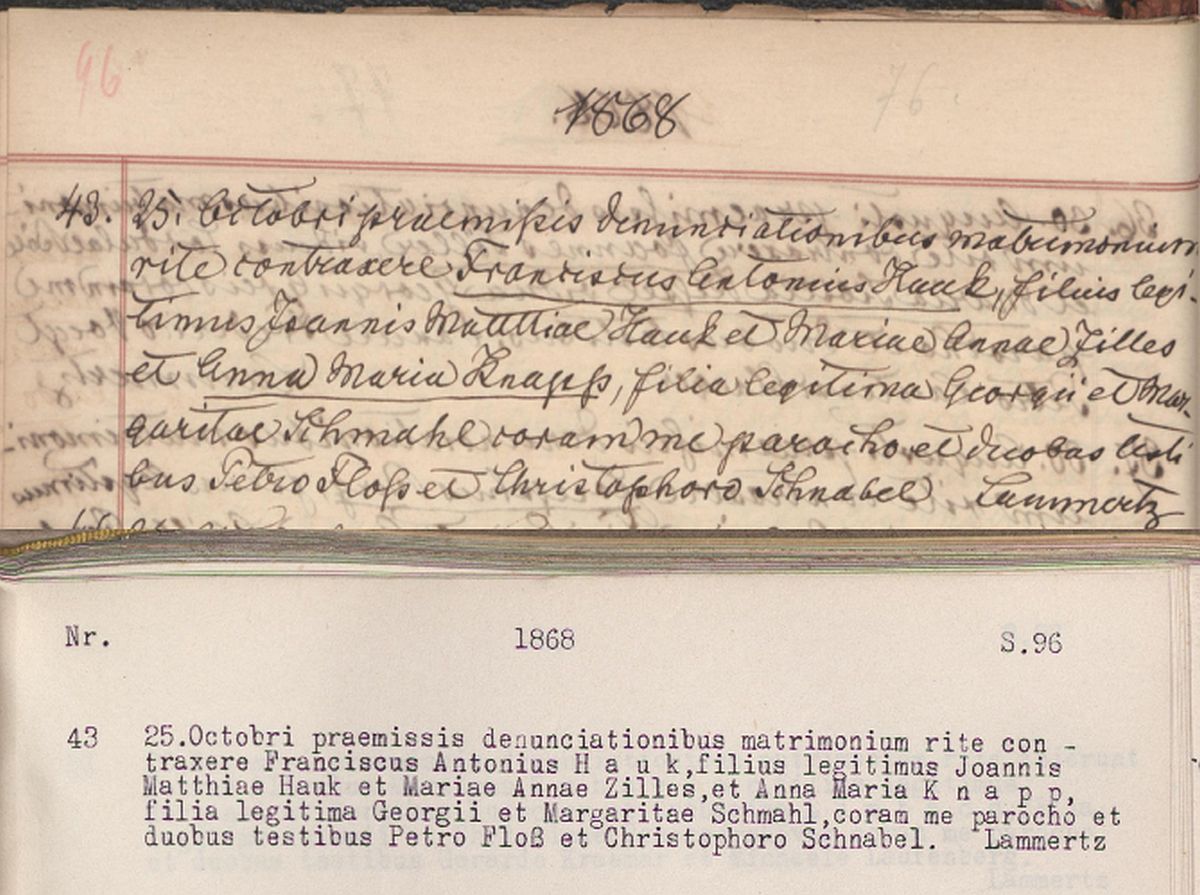 96
1868
76.
43. 25. Octobri praemißis denunciationibus matrimonium
rite contraxere Franciscus Antonius Hauk, filius legi-
timus Joannis Matthiae Hauk et Mariae Annae Zilles
et Anna Maria Knapp, filia legitima Georgii et Mar-
garitae Schmahl coram me parocho et duobas testi-
bus Petro Floß et Christophoro Schnabel Lammertz
Nr. 1868 S.96
43 25.Octobri praemissis denunciationibus matrimonium rite con -
traxere Franciscus Antonius H a u k,filius legitimus Joannis
Matthiae Hauk et Mariae Annae Zilles,et Anna Maria K n a p p,
filia legitima Georgii et Margaritae Schmahl,coram me parocho et
duobus testibus Petro Floß et Christophoro Schnabel. Lammertz